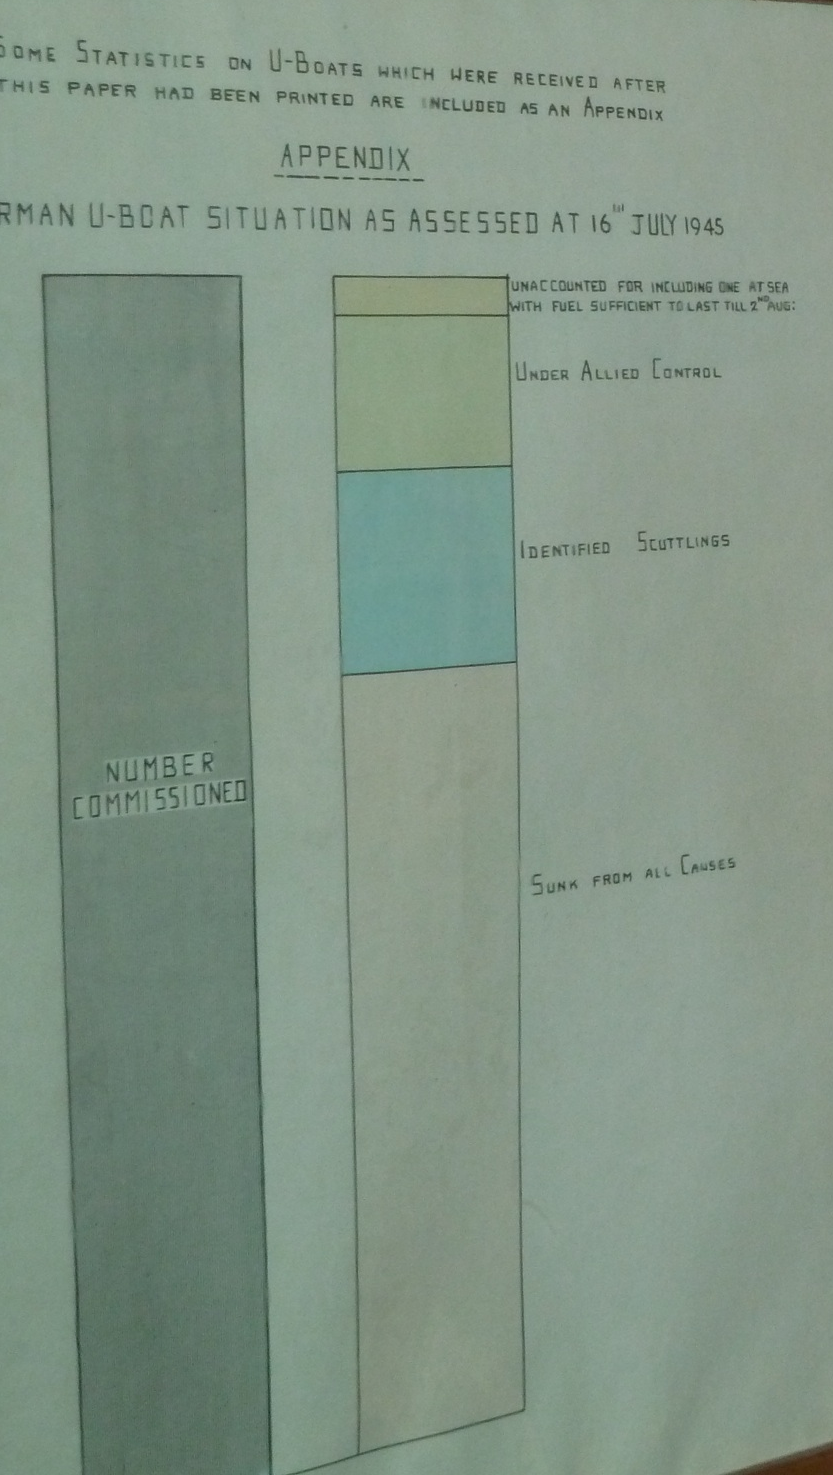 SOME STATISTICS ON U-BOATS WHICH WERE RECEIVED AFTER
THIS PAPER HAD BEEN PRINTED ARE INCLUDED AS AN APPENDIX
APPENDIX
RMAN U-BOAT SITUATION AS ASSESSED AT 16TH JULY 1945
UNACCOUNTED FOR INCLUDING ONE AT SEA
WITH FUEL SUFFICIENT TO LAST TILL 2ND AUG:
UNDER ALLIED CONTROL
IDENTIFIED SCUTTLINGS
NUMBER
COMMISSIONED
SUNK FROM ALL CAUSES